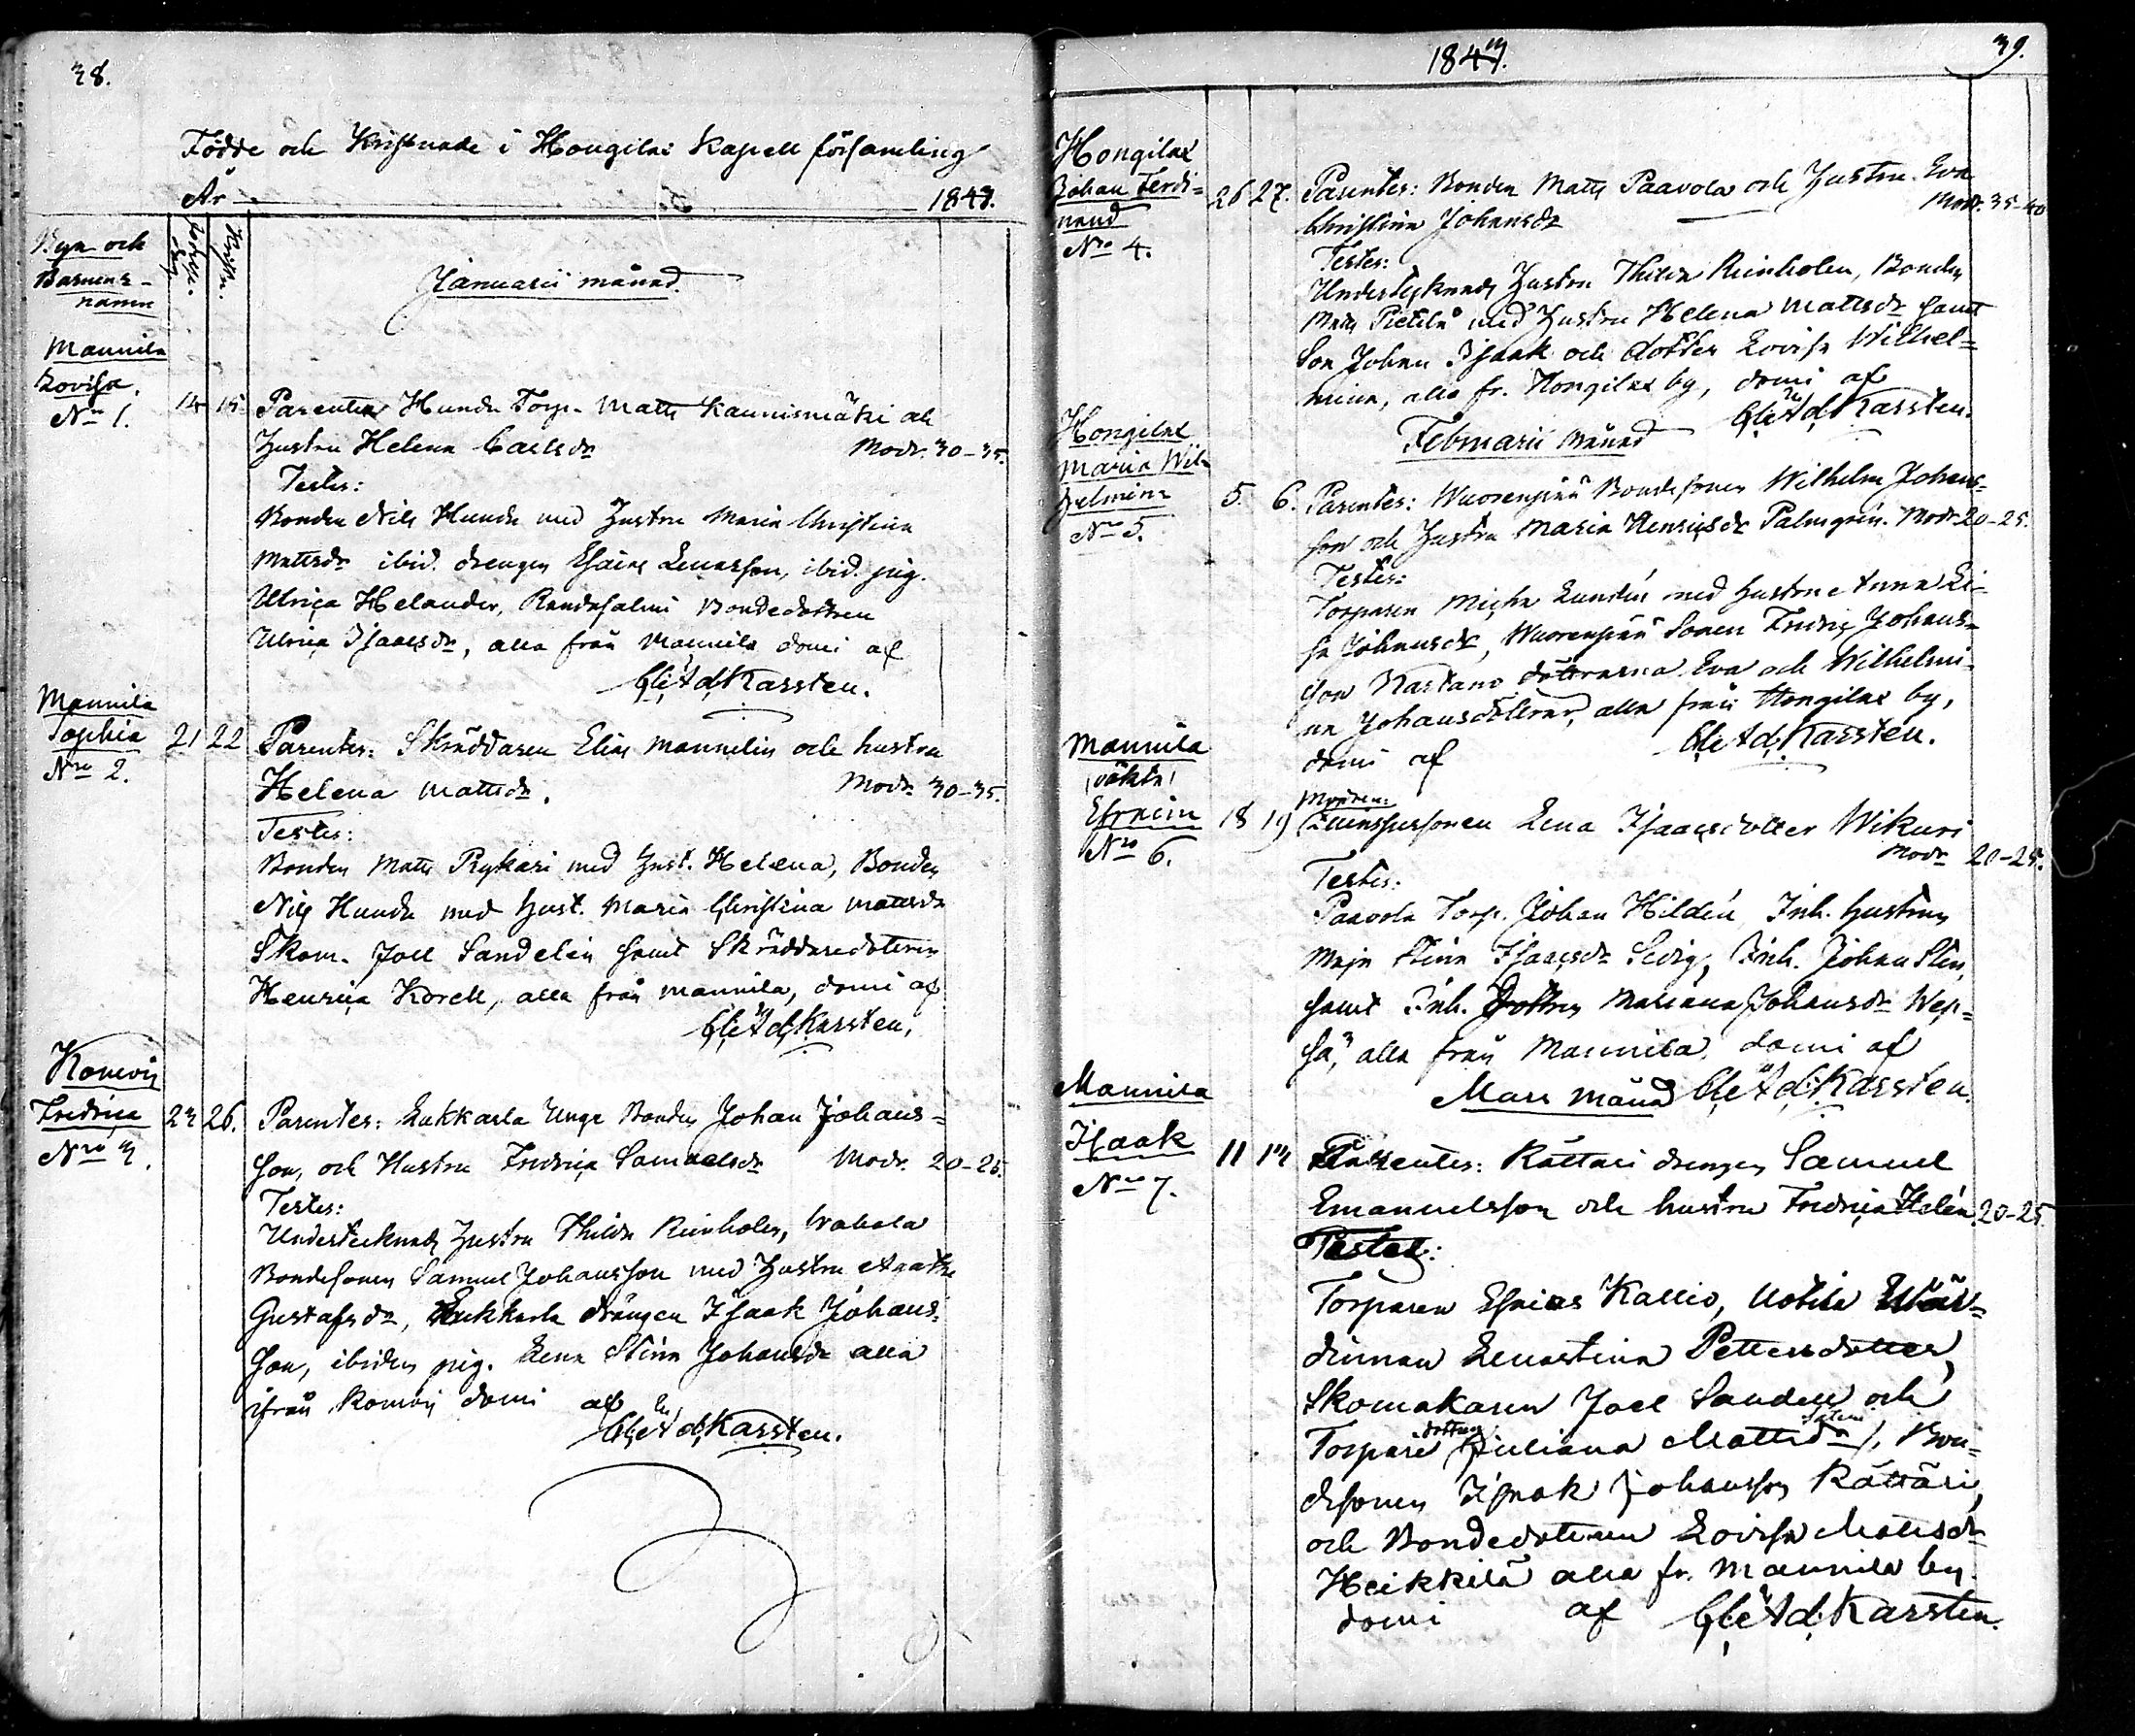 38.
Födde och Kristnade i Hongilax Kapell församling
År 1843.
Byn och
Barnens
namn
Födelse
dag
Kristn.
Januarii månad.
Mannila
Lovisa.
No 1.
14 15
Parentes Hundu Torp. Matts Kaunismäki och
hustru Helena Carlsdr Modr. 30-35.
Testes:
Bonden Nils Hundu med Hustru Maria Christina
Mattsdr ibid. drengen Esaias Lenasson, ibid. pig.
Ulrica Helander, Bondedottren
Ulrica Isaacsdr, alla från Mannila domi af
Ad. Karsten.
Mannila
Sophia
Nro 2.
21 22
Parentes: Skräddaren Elias Mannelin och hustru
Helena Mattsdr. Modr 30-35.
Testes:
Bonden Matts Prykäri med Hust. Helena, Bonden
Nils Hundu med Hust. Maria Christina Mattsdr
Skom. Joel Sandelin samt Skräddaredottren
Henrica Korell, alla från Mannila, domi af
Ad. Karsten.
Komois
Fredrica
Nro 3.
23 26.
Parentes: Lukkarla Unge Bonden Johan Johans=
son, och Hustru Fredrica Samuelsdr Modr. 20-25.
Testes:
Undertecknads Hustru Thilda Reinholm,
Bondesonen Samuel Johansson med Hustru Agatha
Gustafsdr, Lukkarla drängen Isaak Johans=
son, ibidem pig. Lena Stina Johansdr alla
ifrån Komois domi af
Ad. Karsten.
1843.
39.
Hongilax
Johan Ferdi=
nand
No 4.
26 27.
Parentes: Bonden Matts Paavola och Hustru Eva
Christina Johansdr Modr. 35-40
Testes:
Undertecknads Hustru Thilda Reinholm, Bonden
Matts Pietilä med Hustru Helena Mattsdr samt
Son Johan Isaak och dotter Lovisa Wilhel=
mina, alla fr. Hongilax by, domi af
Ad. Karsten.
Februarii Månad
Hongilax
Maria Wil=
helmina
No 5.
5. 6.
Parentes: Wuorenpää Bondesonen Wilhelm Johans=
son och Hustru Maria Henricsdr Palmgrén. Modr 20-25.
Testes:
Torparen Micha Lundén med hustru Anna Li=
sa Johansdr, Wuorenpää Sonen Fredric Johans=
son Kastano döttrarna Eva och Wilhelmi=
na Johansdöttrar, alla från Hongilax by,
domi af Ad. Karsten.
Mannila
(oäkta)
Efraim
No 6.
18 19
Modren:
Qvinspersonen Lena Isaacsdotter Wikuri
Modr 20-25.
Testes:
Paavola Torp. Johan Hildén Inh. hustrun
Maja Stina Isaacsdr Inh. Johan Sten,
samt Inh. Dottren Mariana Johansdr Wep=
sä, alla från Mannila, domi af
Ad. Karsten.
Mars Månad
Mannila
Isaak
No 7.
11 13
Parentes: Rättäri drengen Samuel
Emanuelsson och hustru Fredrica Helén 20-25.
Testes:
Torparen Esaias Kallio, Uotila Wär=
dinnan Lenastina Pettersdotter,
Skomakaren Joel Sandell och
Torpare dottren Juliana Mattsdr, Bon=
desonen Isaak Johansson Rättäri,
och Bondedottren Lovisa Mattsdr
Heikkilä alla fr. Mannila by.
domi af Ad. Karsten.